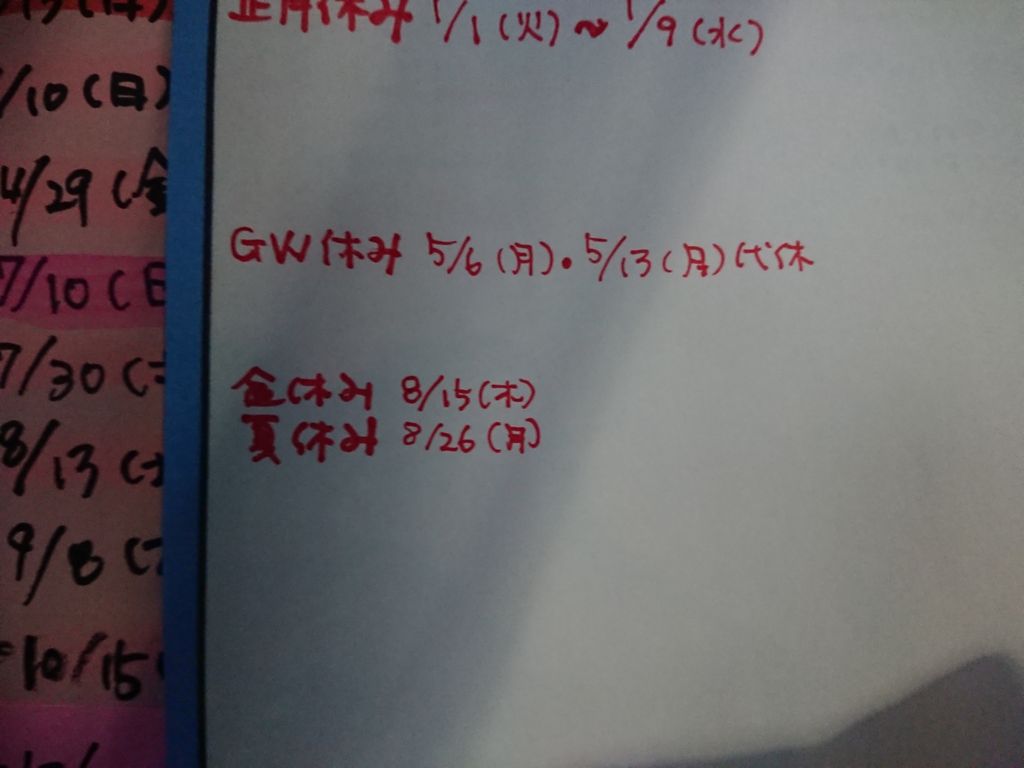 正月休み 1/1(火)~1/9(水)
GW休み 5/6(月)・5/13(月)代休
金休み 8/15(木)
夏休み 8/26(月)
/10(日)
4/29(金
7/10(日
7/30(
8/13(
9/8(
10/15(